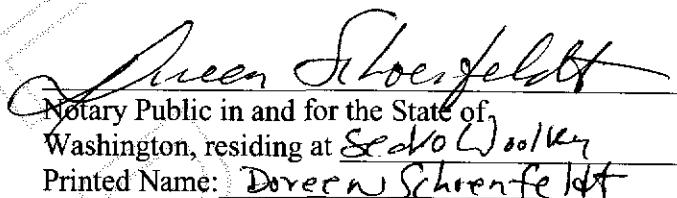 Doreen Schoenfeldt
Notary Public in and for the State of
Washington, residing at Sedro Woolley
Printed Name: Doreen Schoenfeldt